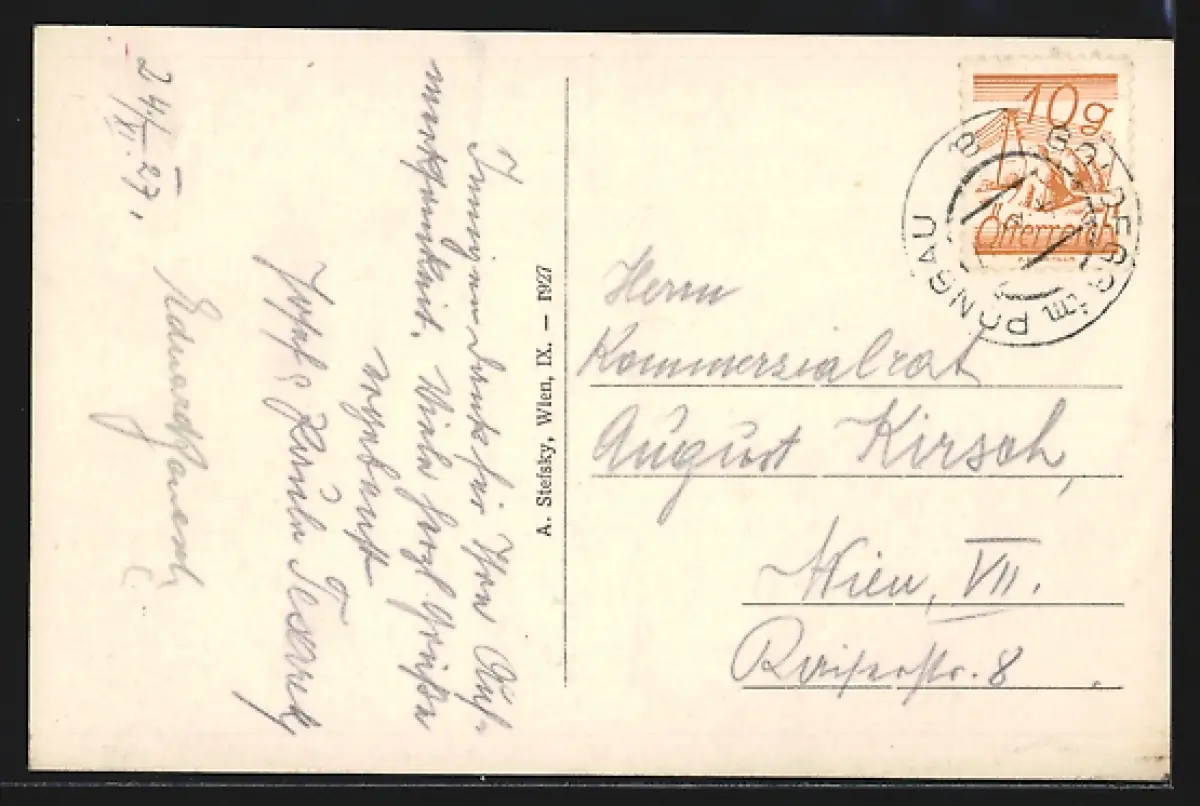 24./XI. 27.
Innigen Dank für Ihre Auf-
merksamkeit. Viele herzl. Grüße
ergebenst
Josef u.
Eduard
A. Stefsky, Wien, IX. — 1927
10g
Österreich
GOLDEGG im PONGAU
Herrn
Kommerzialrat
August Kirsch,
Wien, VII.
8